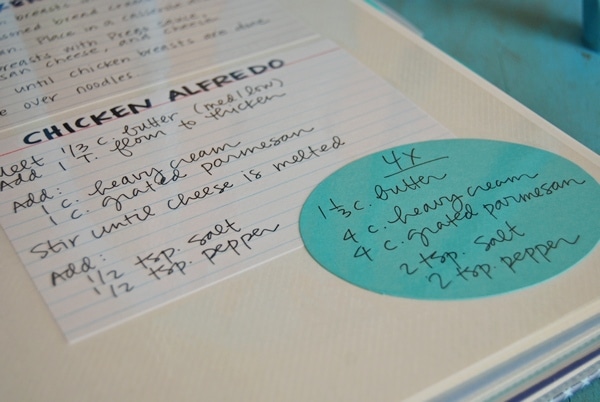 Place in a casserole
breasts with Prego sauce,
san cheese, and cheese
until chicken breasts are done
over noodles
CHICKEN ALFREDO
Melt 1/3 c. butter (med/low)
Add 1 T. flour to thicken
Add:
1 c. heavy cream
1 c. grated parmesan
Stir until cheese is melted
Add:
1/2 tsp. salt
1/2 tsp. pepper
4X
1 1/3 c. butter
4 c. heavy cream
4 c. grated parmesan
2 tsp. salt
2 tsp. pepper